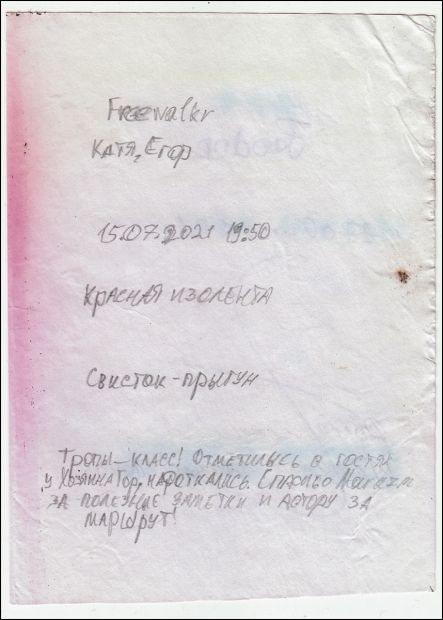 Freewalkr
Катя, Егор
15.07.2021 19:50
Красная изолента
Свисток-прыгун
Тропы – класс! Отметились в гостях
у Хозяина Гор, нароткались. Спасибо
за полезные заметки и автору за
маршрут!